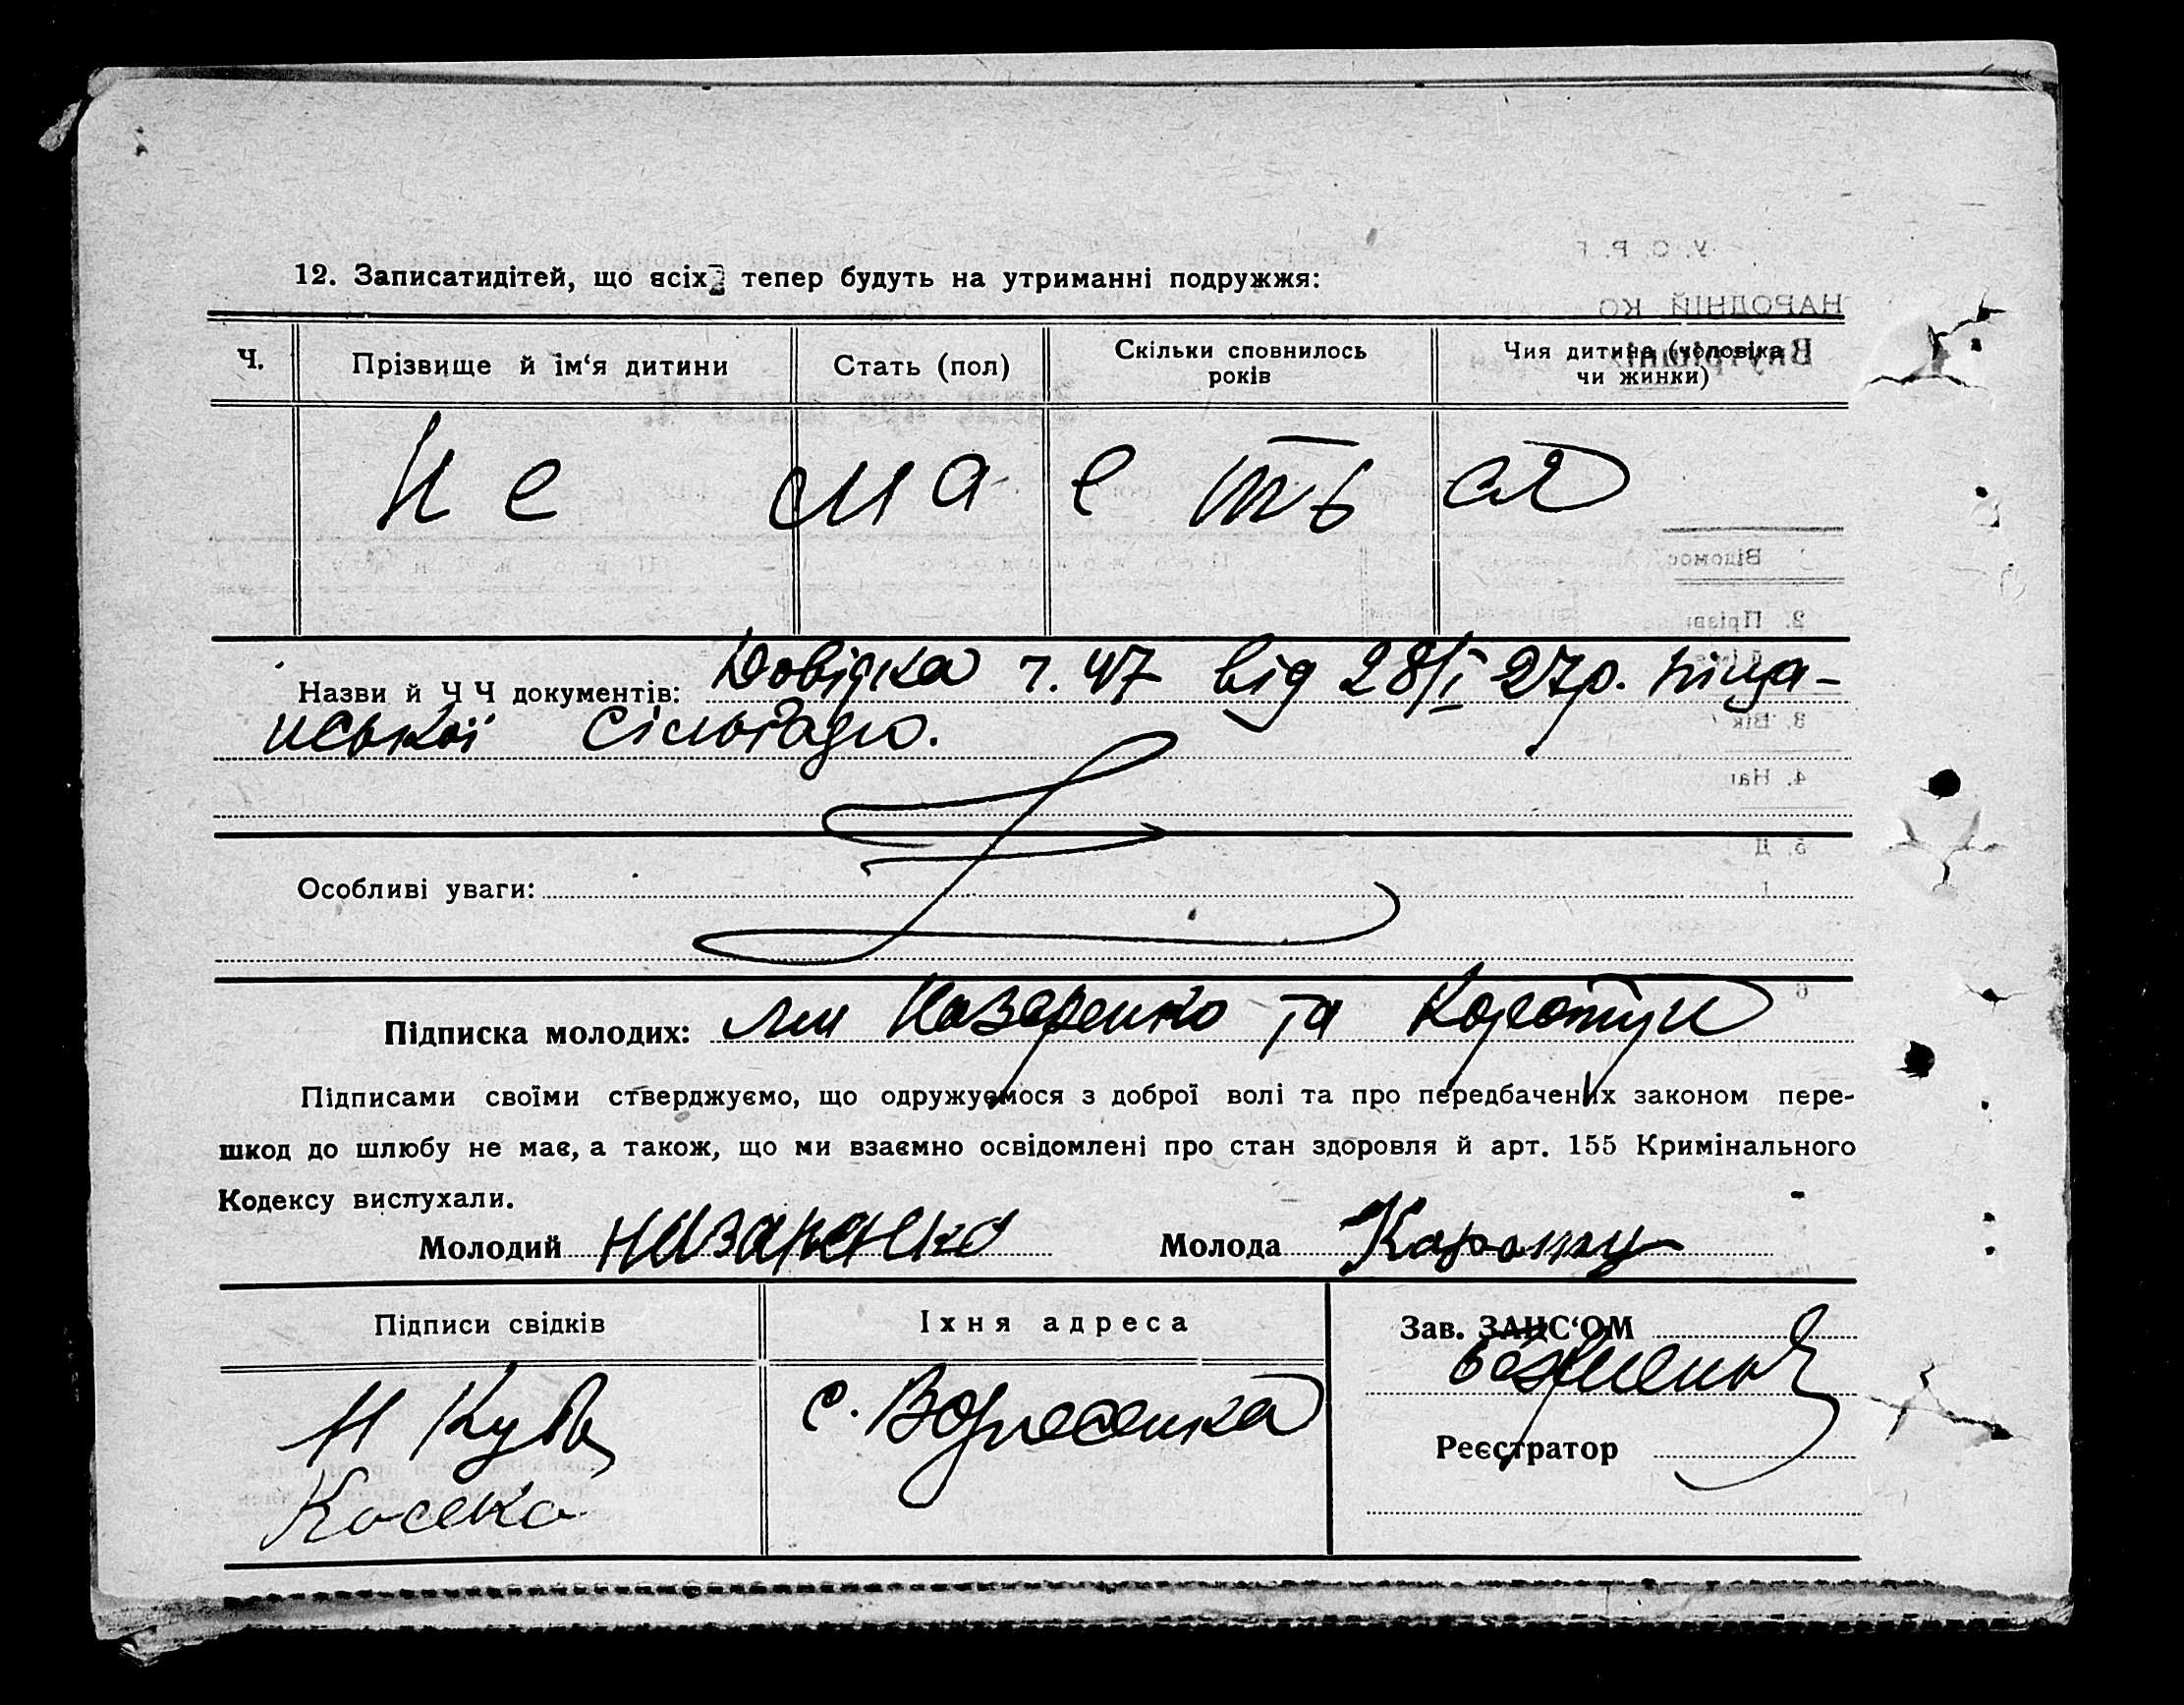 12. Записатидітей, що всіх тепер будуть на утриманні подружжя:
Ч.
Прізвище й ім‘я дитини
Стать (пол)
Скільки сповнилось
років
Чия дитина (чоловіка
чи жинки)
Не мається
Назви й Ч Ч документів: Довідка ч. 47 від 28/I 27р. піща-
нської сільради.
Особливі уваги:
Підписка молодих: ми Назаренко та Коротун
Підписами своїми стверджуємо, що одружуємося з доброї волі та про передбачених законом пере-
шкод до шлюбу не має, а також, що ми взаємно освідомлені про стан здоровля й арт. 155 Кримінального
Кодексу вислухали.
Молодий Низаренко Молода Коротун
Підписи свідків
Їхня адреса
Зав. ЗАЦС‘ОМ
Н
с. Вознесенка
Реєстратор